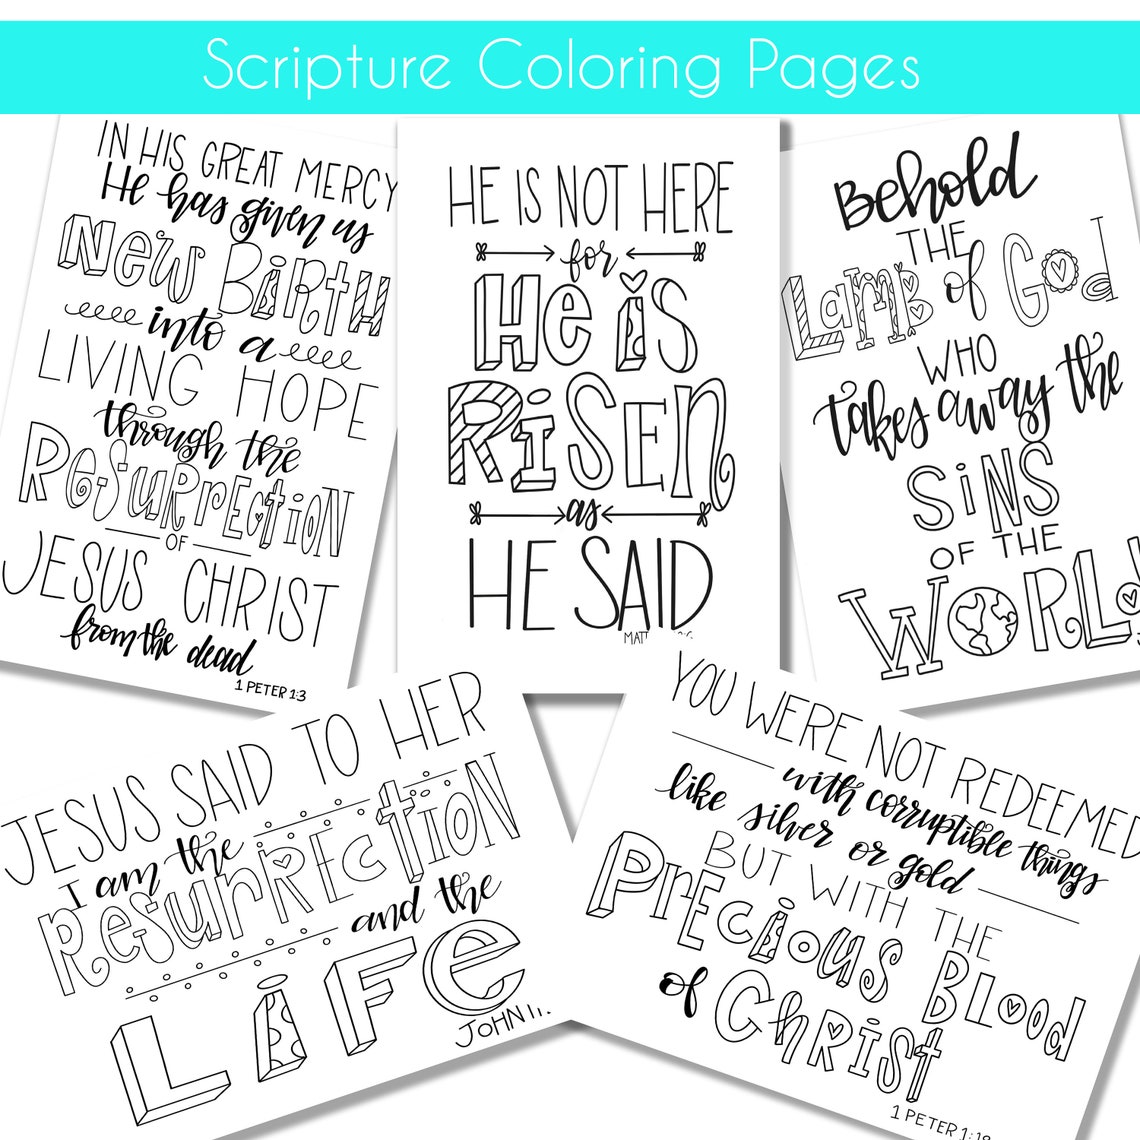 Scripture Coloring Pages
IN HIS GREAT MERCY
He has given us
NEW BIRTH
into a
LIVING HOPE
through the
RESURRECTION
OF
JESUS CHRIST
from the dead
1 PETER 1:3
HE IS NOT HERE
for
He is
RISEN
as
HE SAID
Behold
THE
LAMB of God
WHO
takes away the
SINS
OF THE
WORLD!
JESUS SAID TO HER
I am the
RESURRECTION
and the
LIFE
JOHN 11:
YOU WERE NOT REDEEMED
with corruptible things
like silver or gold
BUT WITH THE
PRECIOUS BLOOD
of CHRIST
1 PETER 1:18